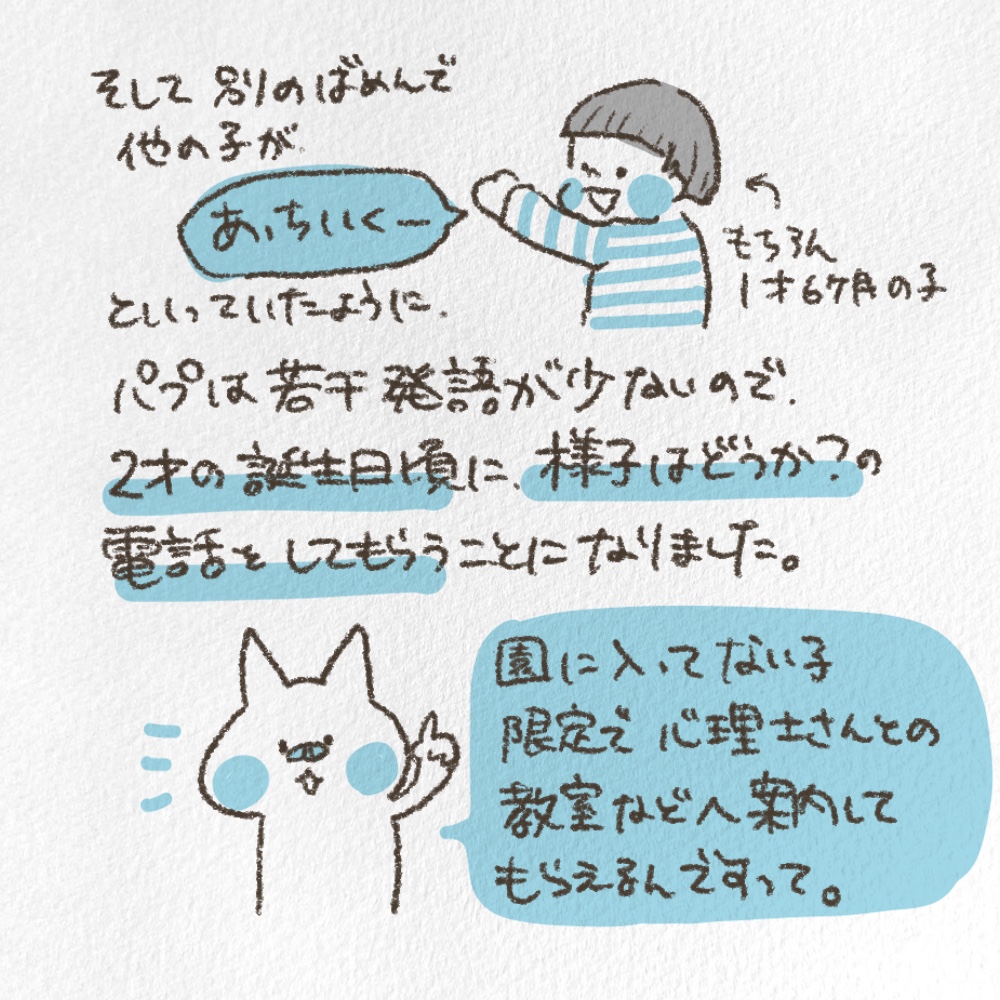 そして 別のばめんで
他の子が、
あっちいくー
といっていたように、
←
もちろん
1才6ヶ月の子
パプは若干発語が少ないので、
2才の誕生日頃に、様子はどうか?の
電話をしてもらうことになりました。
園に入ってない子
限定で心理士さんとの
教室などへ案内して
もらえるんですって。